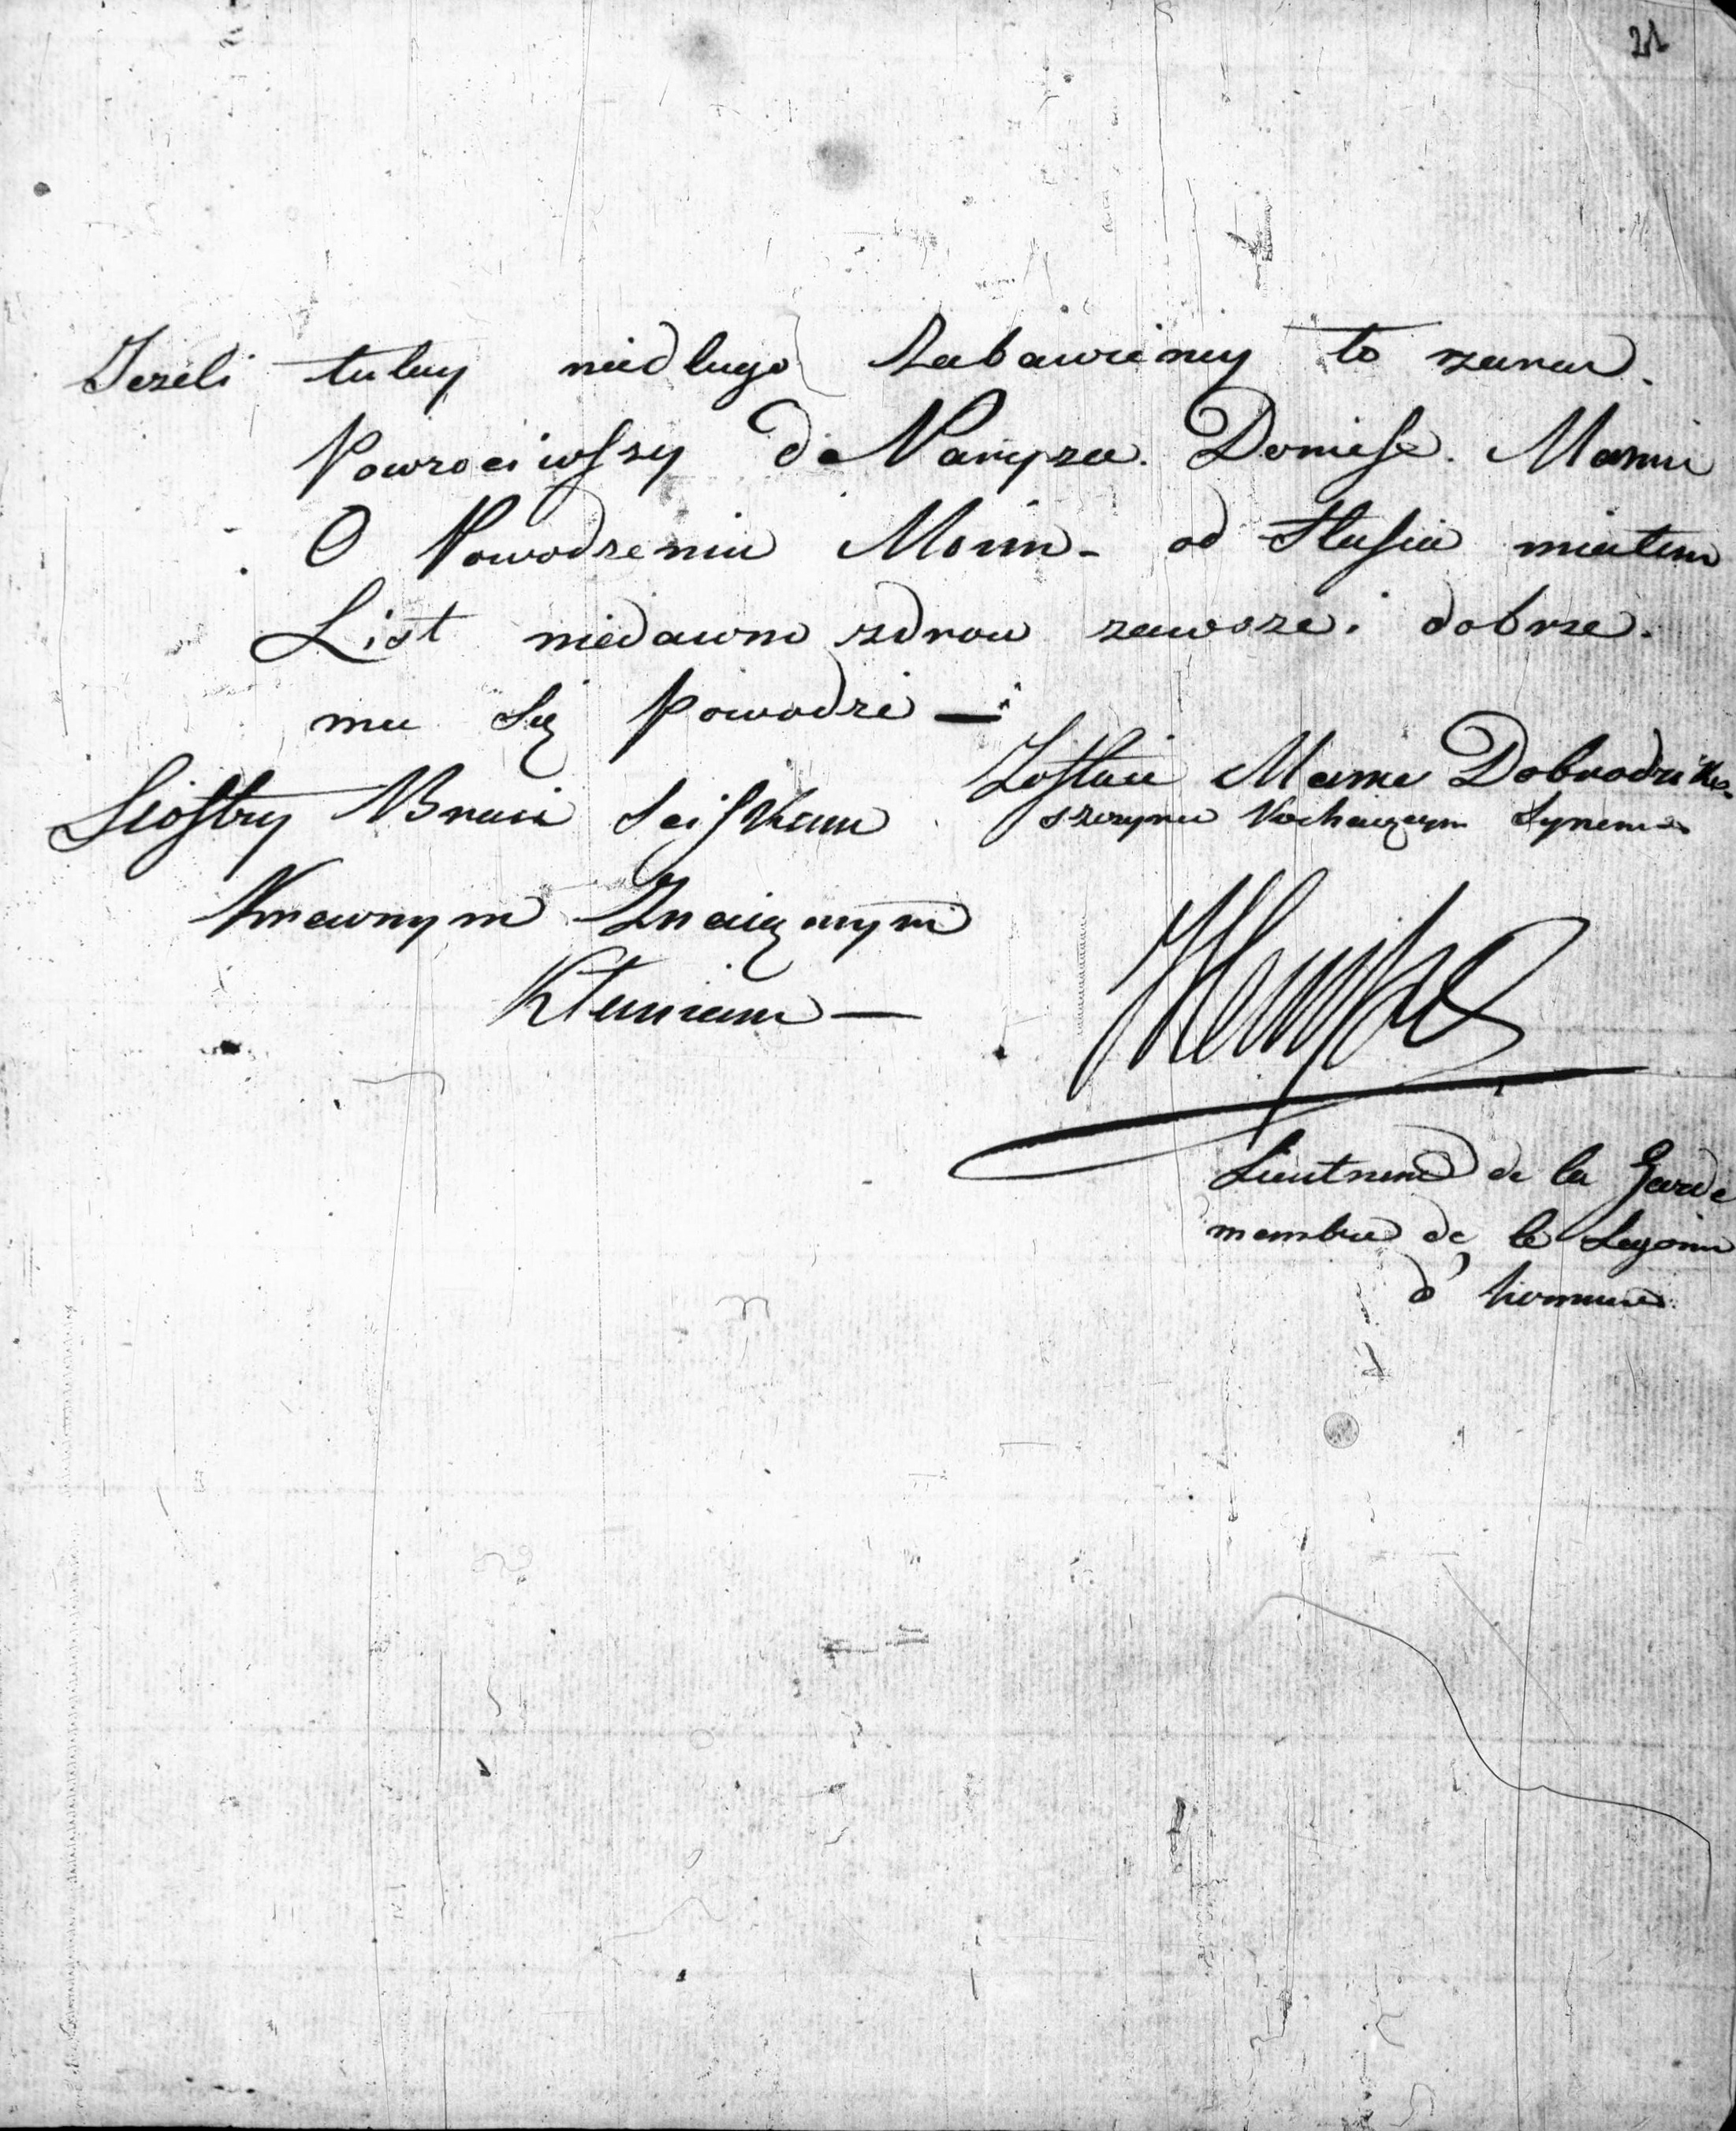 21
Jezeli tutay niedlugo Zabawiemy to zaraz.
Powrociwszy do Paryza. Doniese. Mamie
O Powodzeniu Moim - od Stasia mialem
List niedawno zdrow zawsze. dobrze.
mu Się Powodzi —
Siostry Braci Sciskam
Krewnym Znaiąmym
Kłaniam —
Zostaie Mamie Dobrodzike
szczyrze Kochaiącym Synem
Hempel
Lieutnend de la Garde
membre de le Legonie
d' honneure